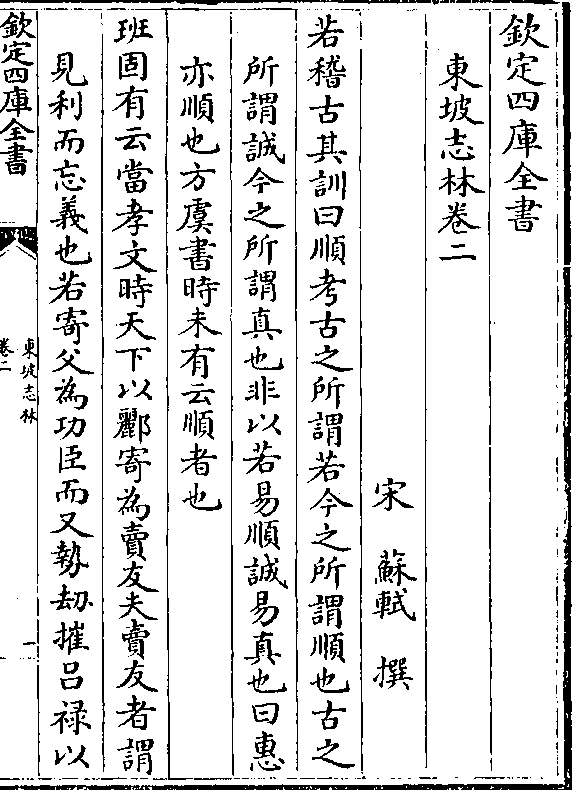 欽定四庫全書
東坡志林卷二
宋 蘇軾 撰
若稽古其訓曰順考古之所謂若今之所謂順也古之
所謂誠今之所謂真也非以若易順誠易真也曰惠
亦順也方虞書時未有云順者也
班固有云當孝文時天下以酈寄為賣友夫賣友者謂
見利而忘義也若寄父為功臣而又執劫摧呂祿以
欽定四庫全書
東坡志林
卷二
一